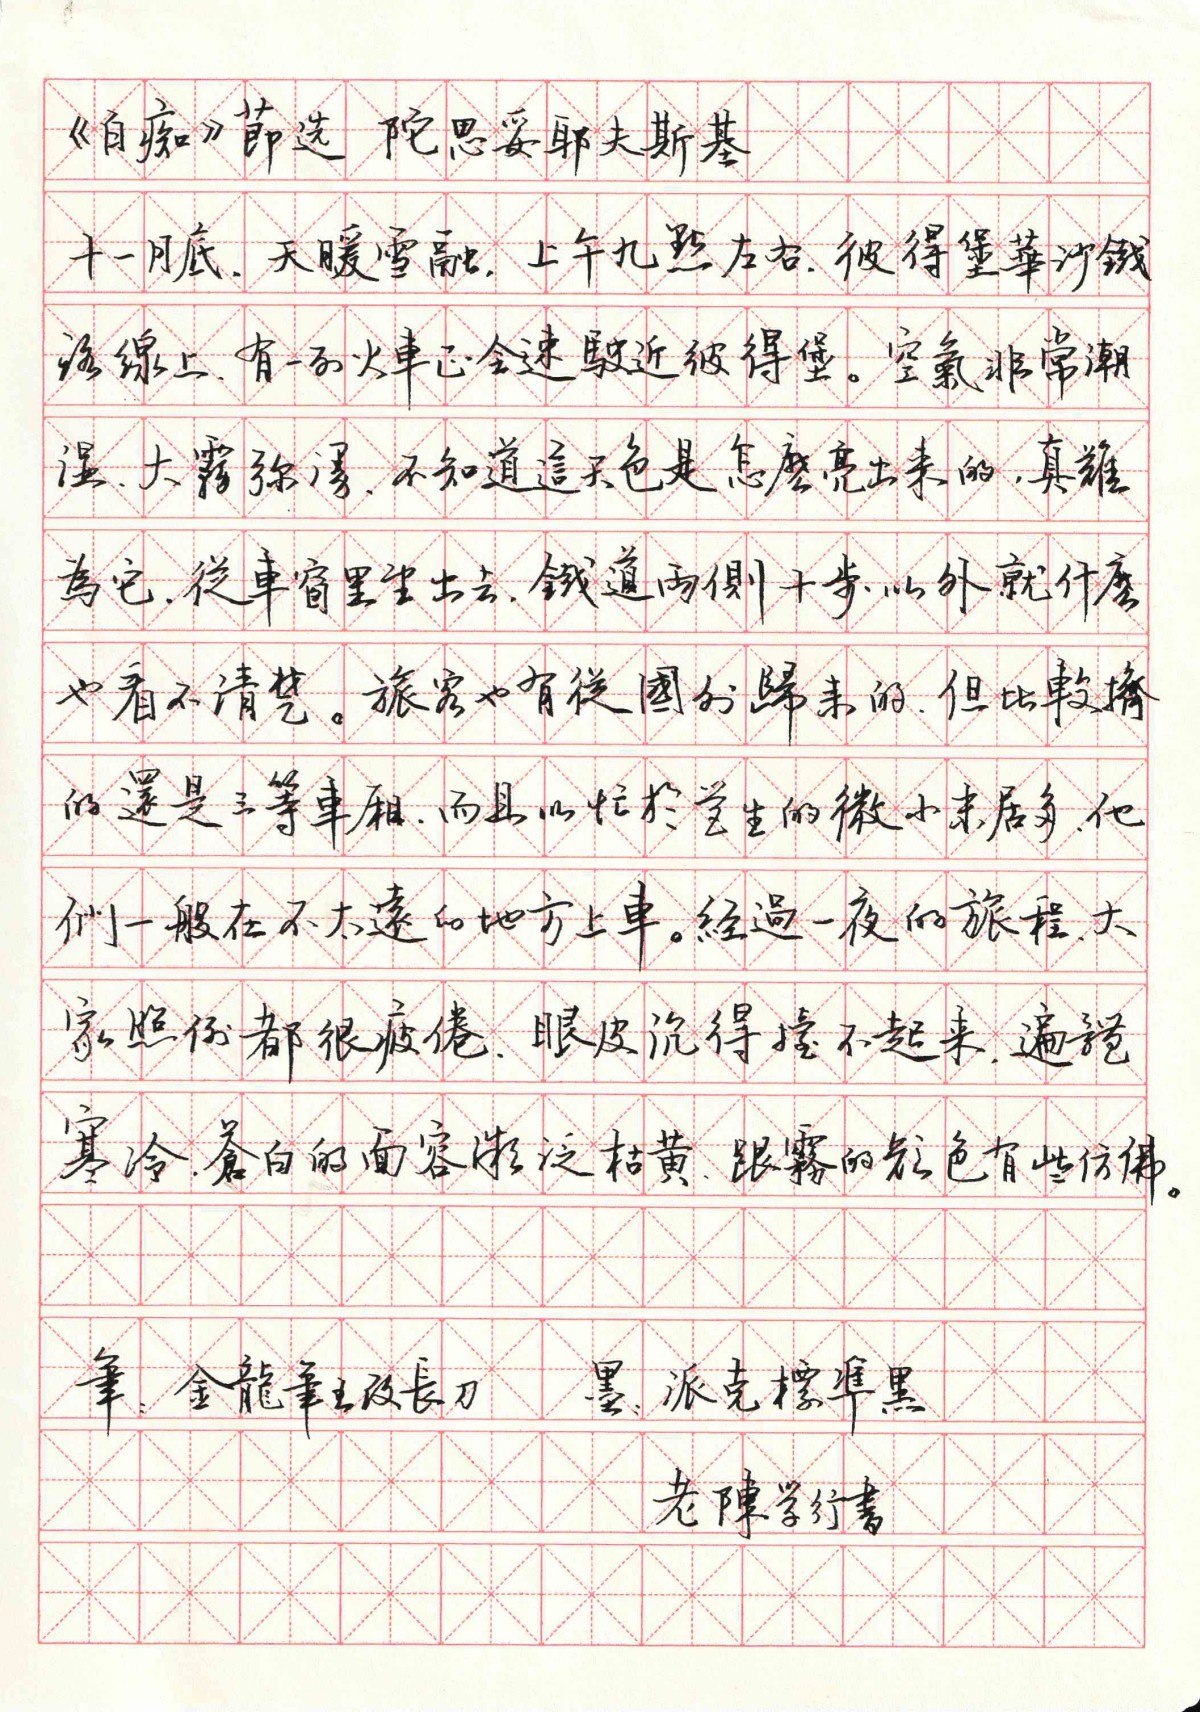 《白痴》節选 陀思妥耶夫斯基
十一月底，天暖雪融，上午九點左右，彼得堡華沙鐵
路線上，有一列火車正全速駛近彼得堡。空氣非常潮
湿，大霧弥漫，不知道這天色是怎麼亮出来的，真難
為它，從車窗里望出去，鐵道兩側十步以外就什麼
也看不清楚。旅客也有從國外歸来的，但比較擠
的還是三等車厢，而且以忙於营生的微小末居多，他
們一般在不太遠的地方上車。經過一夜的旅程，大
家照例都很疲倦，眼皮沉得擡不起来，遍體
寒冷，蒼白的面容漸泛枯黄，跟霧的顏色有些仿佛。
筆：金龍筆王改長刀 墨：派克標準黑
老陳学行書